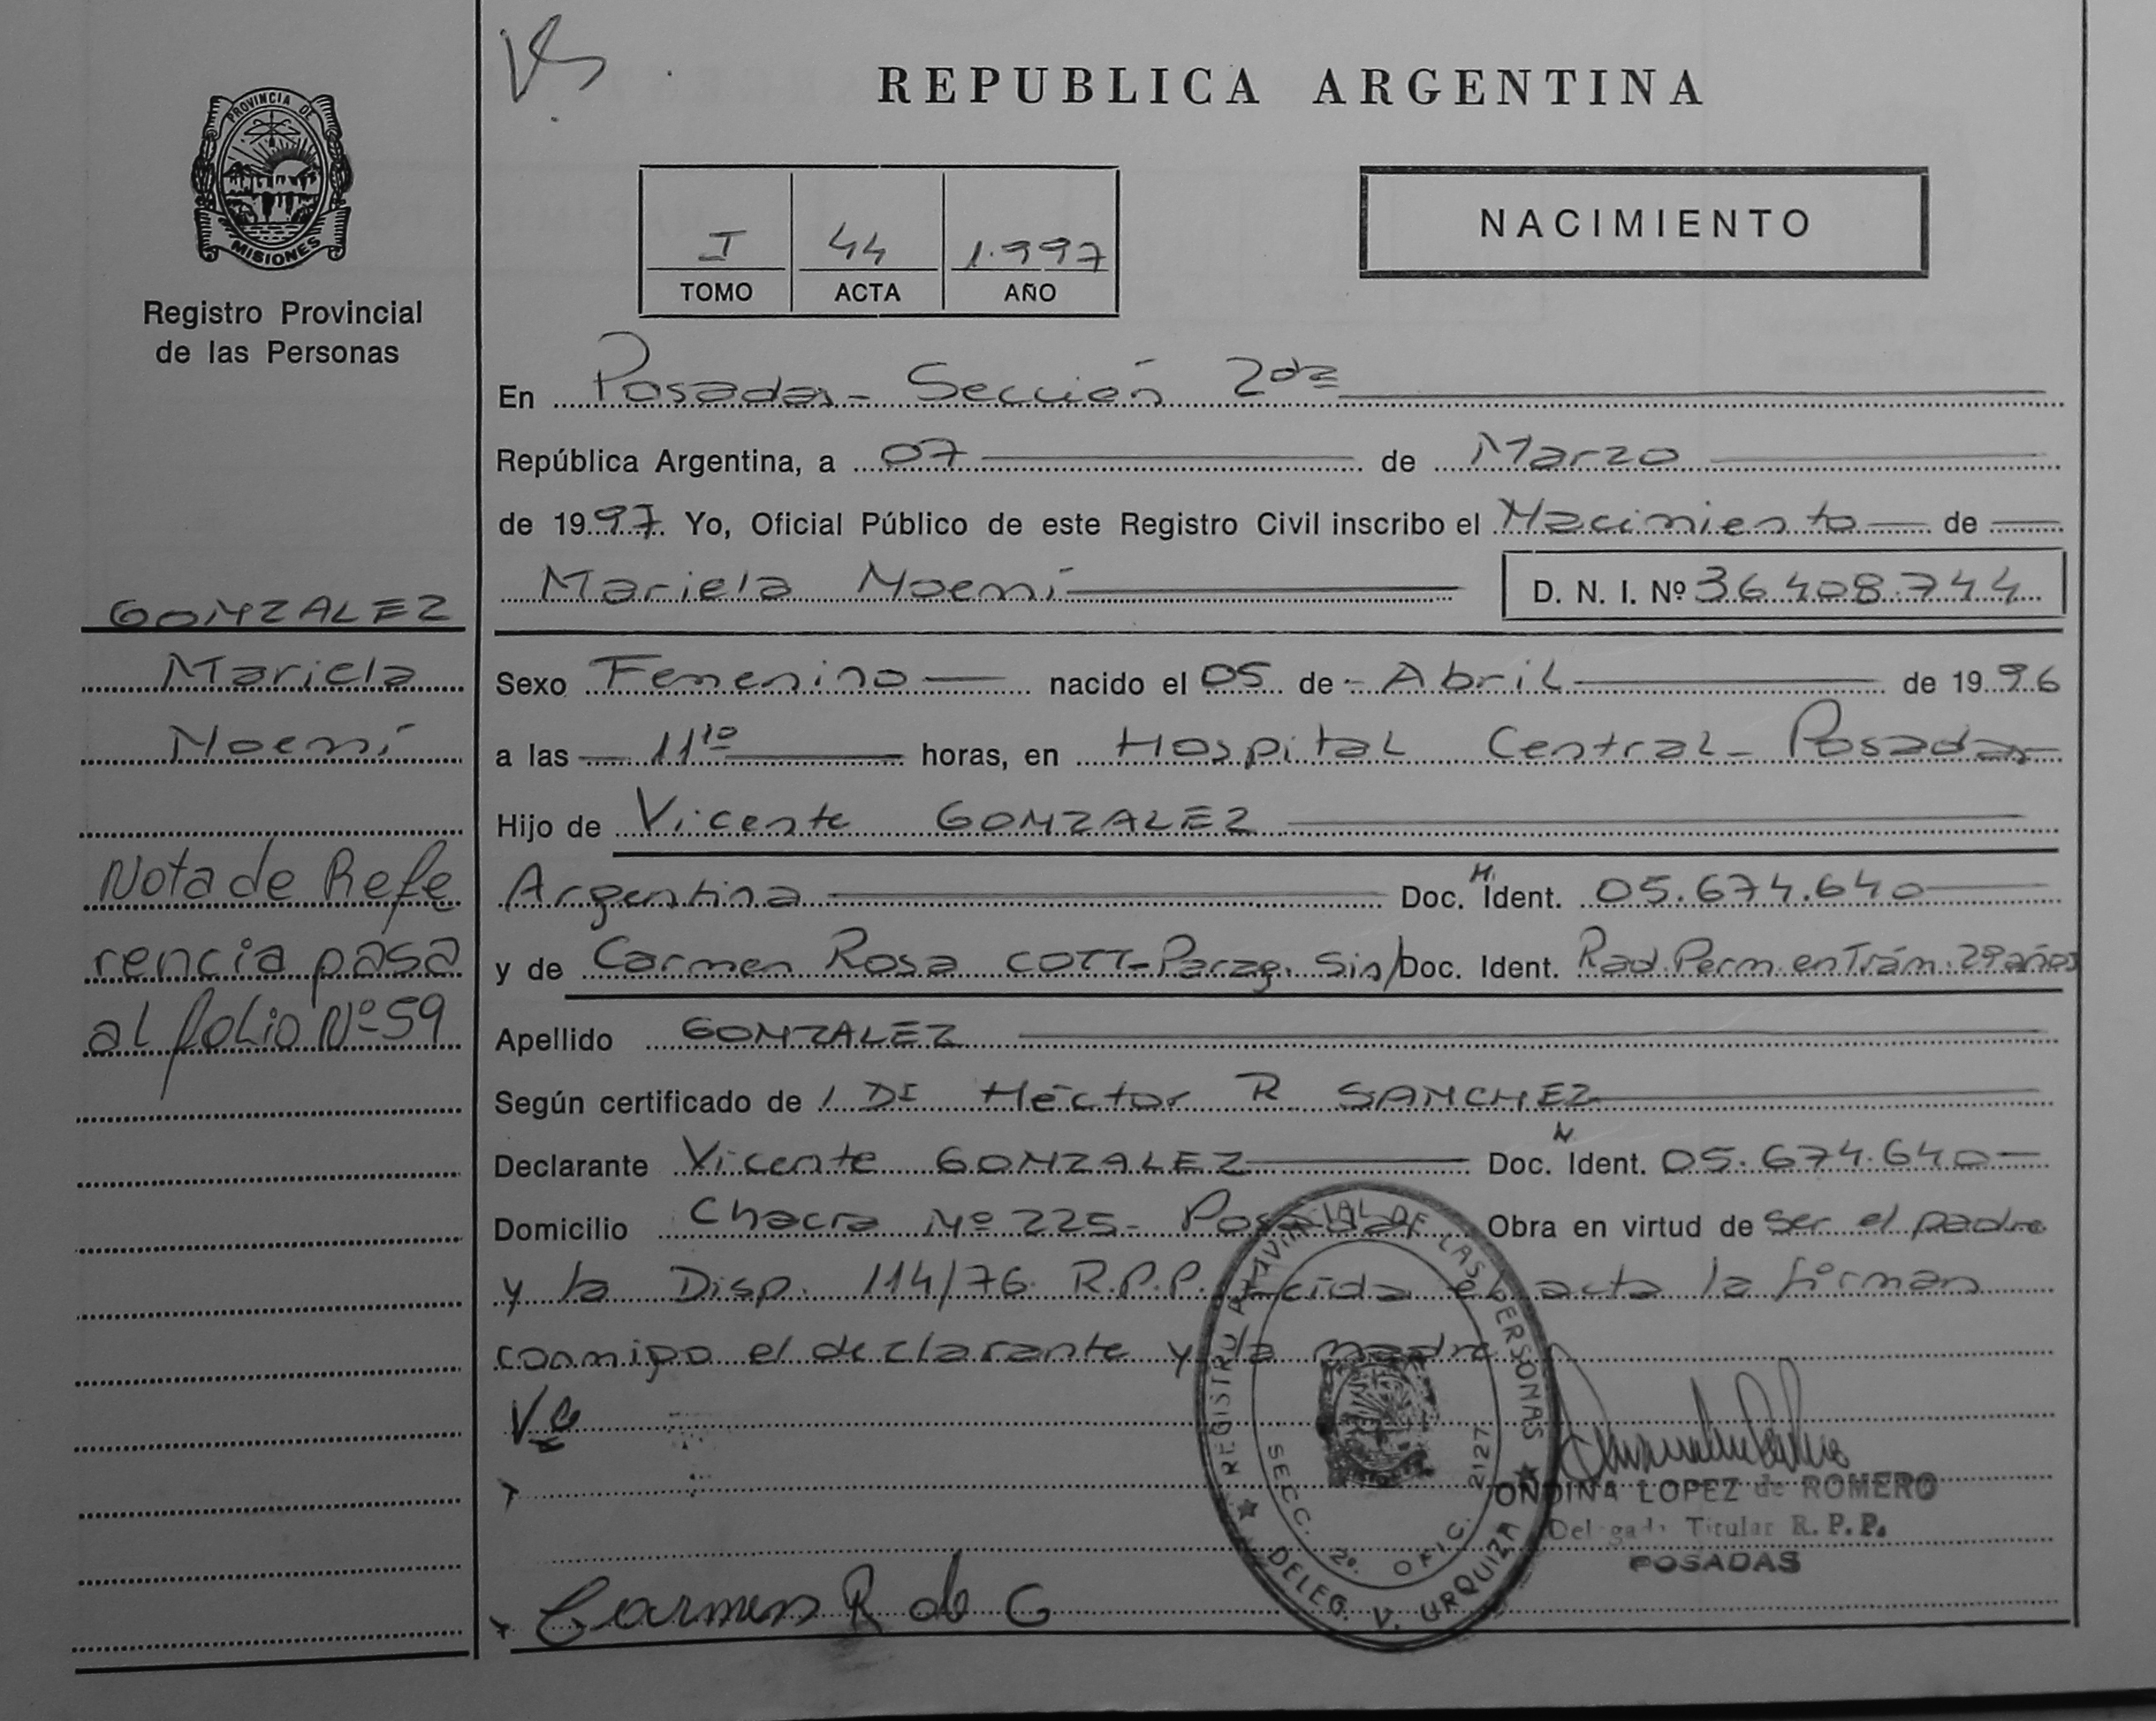 REPUBLICA ARGENTINA
PROVINCIA DE
MISIONES
Registro Provincial
de las Personas
I 44 1.997
TOMO ACTA AÑO
NACIMIENTO
En Posadas - Sección 2da
República Argentina, a 07 de Marzo
de 1997. Yo, Oficial Público de este Registro Civil inscribo el Nacimiento de
Mariela Noemí D. N. I. Nº 36.408.744
GONZALEZ
Mariela
Noemí
Nota de Refe
rencia pasa
al folio Nº 59
Sexo Femenino nacido el 05 de Abril de 1996
a las 11 10 horas, en Hospital Central - Posadas
Hijo de Vicente GONZALEZ
Argentina Doc. N. Ident. 05.674.640
y de Carmen Rosa COTT - Parag. Sin/Doc. Ident. Rad. Perm. en Trám. 29 años
Apellido GONZALEZ
Según certificado de / Dr Héctor R SANCHEZ
Declarante Vicente GONZALEZ Doc. N Ident. 05.674.640
Domicilio Chacra Nº 225 - Posadas Obra en virtud de ser el padre
y la Disp. 114/76 R.P.P. Leída el acta la firman
conmigo el declarante y la madre
V G
REGISTRO PROVINCIAL DE LAS PERSONAS
SECC. 2º. OFIC. 2127
DELEG. V. URQUIZA
ONDINA LOPEZ de ROMERO
Delegada Titular R. P. P.
POSADAS
Carmen R de G